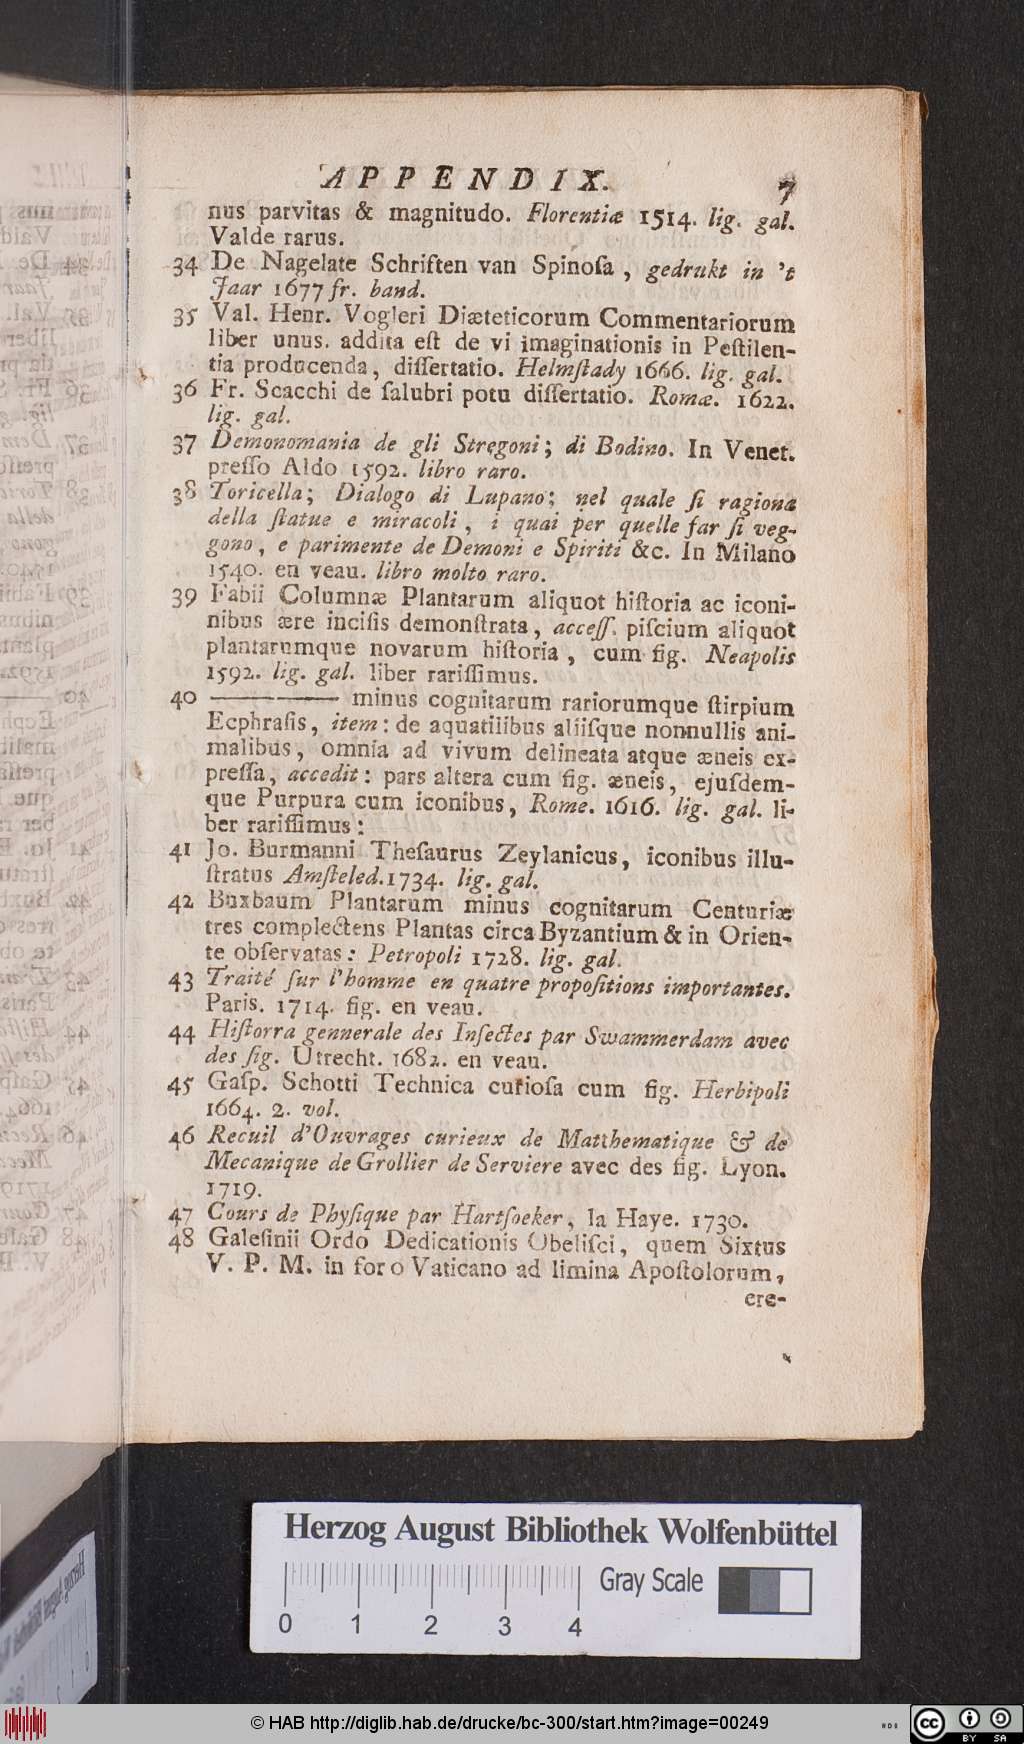 APPENDIX. 7
nus parvitas & magnitudo. Florentiæ 1514. lig. gal.
Valde rarus.
34 De Nagelate Schriften van Spinoſa, gedrukt in 't
Jaar 1677 fr. band.
35 Val. Henr. Vogleri Diæteticorum Commentariorum
liber unus. addita eſt de vi imaginationis in Peſtilen-
tia producenda, diſſertatio. Helmſtady 1666. lig. gal.
36 Fr. Scacchi de ſalubri potu diſſertatio. Romæ. 1622.
lig. gal.
37 Demonomania de gli Stregoni; di Bodino. In Venet.
preſſo Aldo 1592. libro raro.
38 Toricella; Dialogo di Lupano; nel quale ſi ragiona
della ſtatue e miracoli, i quai per quelle far ſi veg-
gono, e parimente de Demoni e Spiriti &c. In Milano
1540. en veau. libro molto raro.
39 Fabii Columnæ Plantarum aliquot hiſtoria ac iconi-
nibus ære inciſis demonſtrata, acceſſ. piſcium aliquot
plantarumque novarum hiſtoria, cum fig. Neapolis
1592. lig. gal. liber rariſſimus.
40 ———— minus cognitarum rariorumque ſtirpium
Ecphraſis, item: de aquatilibus aliiſque nonnullis ani-
malibus, omnia ad vivum delineata atque æneis ex-
preſſa, accedit: pars altera cum fig. æneis, ejuſdem-
que Purpura cum iconibus, Rome. 1616. lig. gal. li-
ber rariſſimus:
41 Jo. Burmanni Theſaurus Zeylanicus, iconibus illu-
ſtratus Amſteled. 1734. lig. gal.
42 Buxbaum Plantarum minus cognitarum Centuriæ
tres complectens Plantas circa Byzantium & in Orien-
te obſervatas: Petropoli 1728. lig. gal.
43 Traité ſur l'homme en quatre propoſitions importantes.
Paris. 1714. fig. en veau.
44 Hiſtorra gennerale des Inſectes par Swammerdam avec
des fig. Utrecht. 1682. en veau.
45 Gaſp. Schotti Technica curioſa cum fig. Herbipoli
1664. 2. vol.
46 Recuil d'Ouvrages curieux de Matthematique & de
Mecanique de Grollier de Serviere avec des fig. Lyon.
1719.
47 Cours de Phyſique par Hartſoeker, la Haye. 1730.
48 Galeſinii Ordo Dedicationis Obeliſci, quem Sixtus
V. P. M. in foro Vaticano ad limina Apoſtolorum,
ere-
Herzog August Bibliothek Wolfenbüttel
Gray Scale
0 1 2 3 4
© HAB http://diglib.hab.de/drucke/bc-300/start.htm?image=00249
cc BY SA